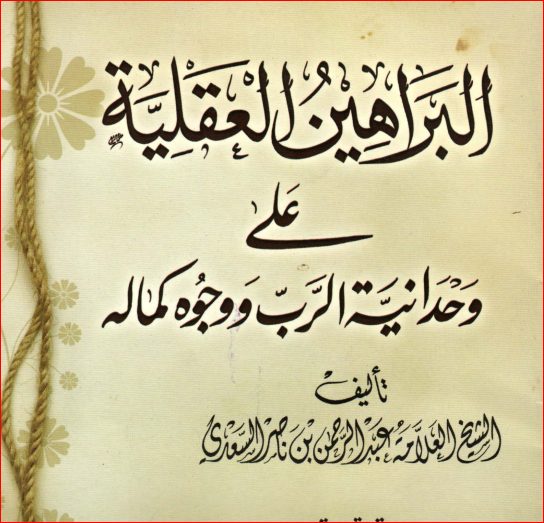 البَرَاهِينُ العَقَلِيَّة
عَلى
وَحْدَانِيَّة الرَبّ وَوجُوه كماله
تأليف
الشيخ العَلّامَة عَبْد الرحمن بن ناصر السعدي